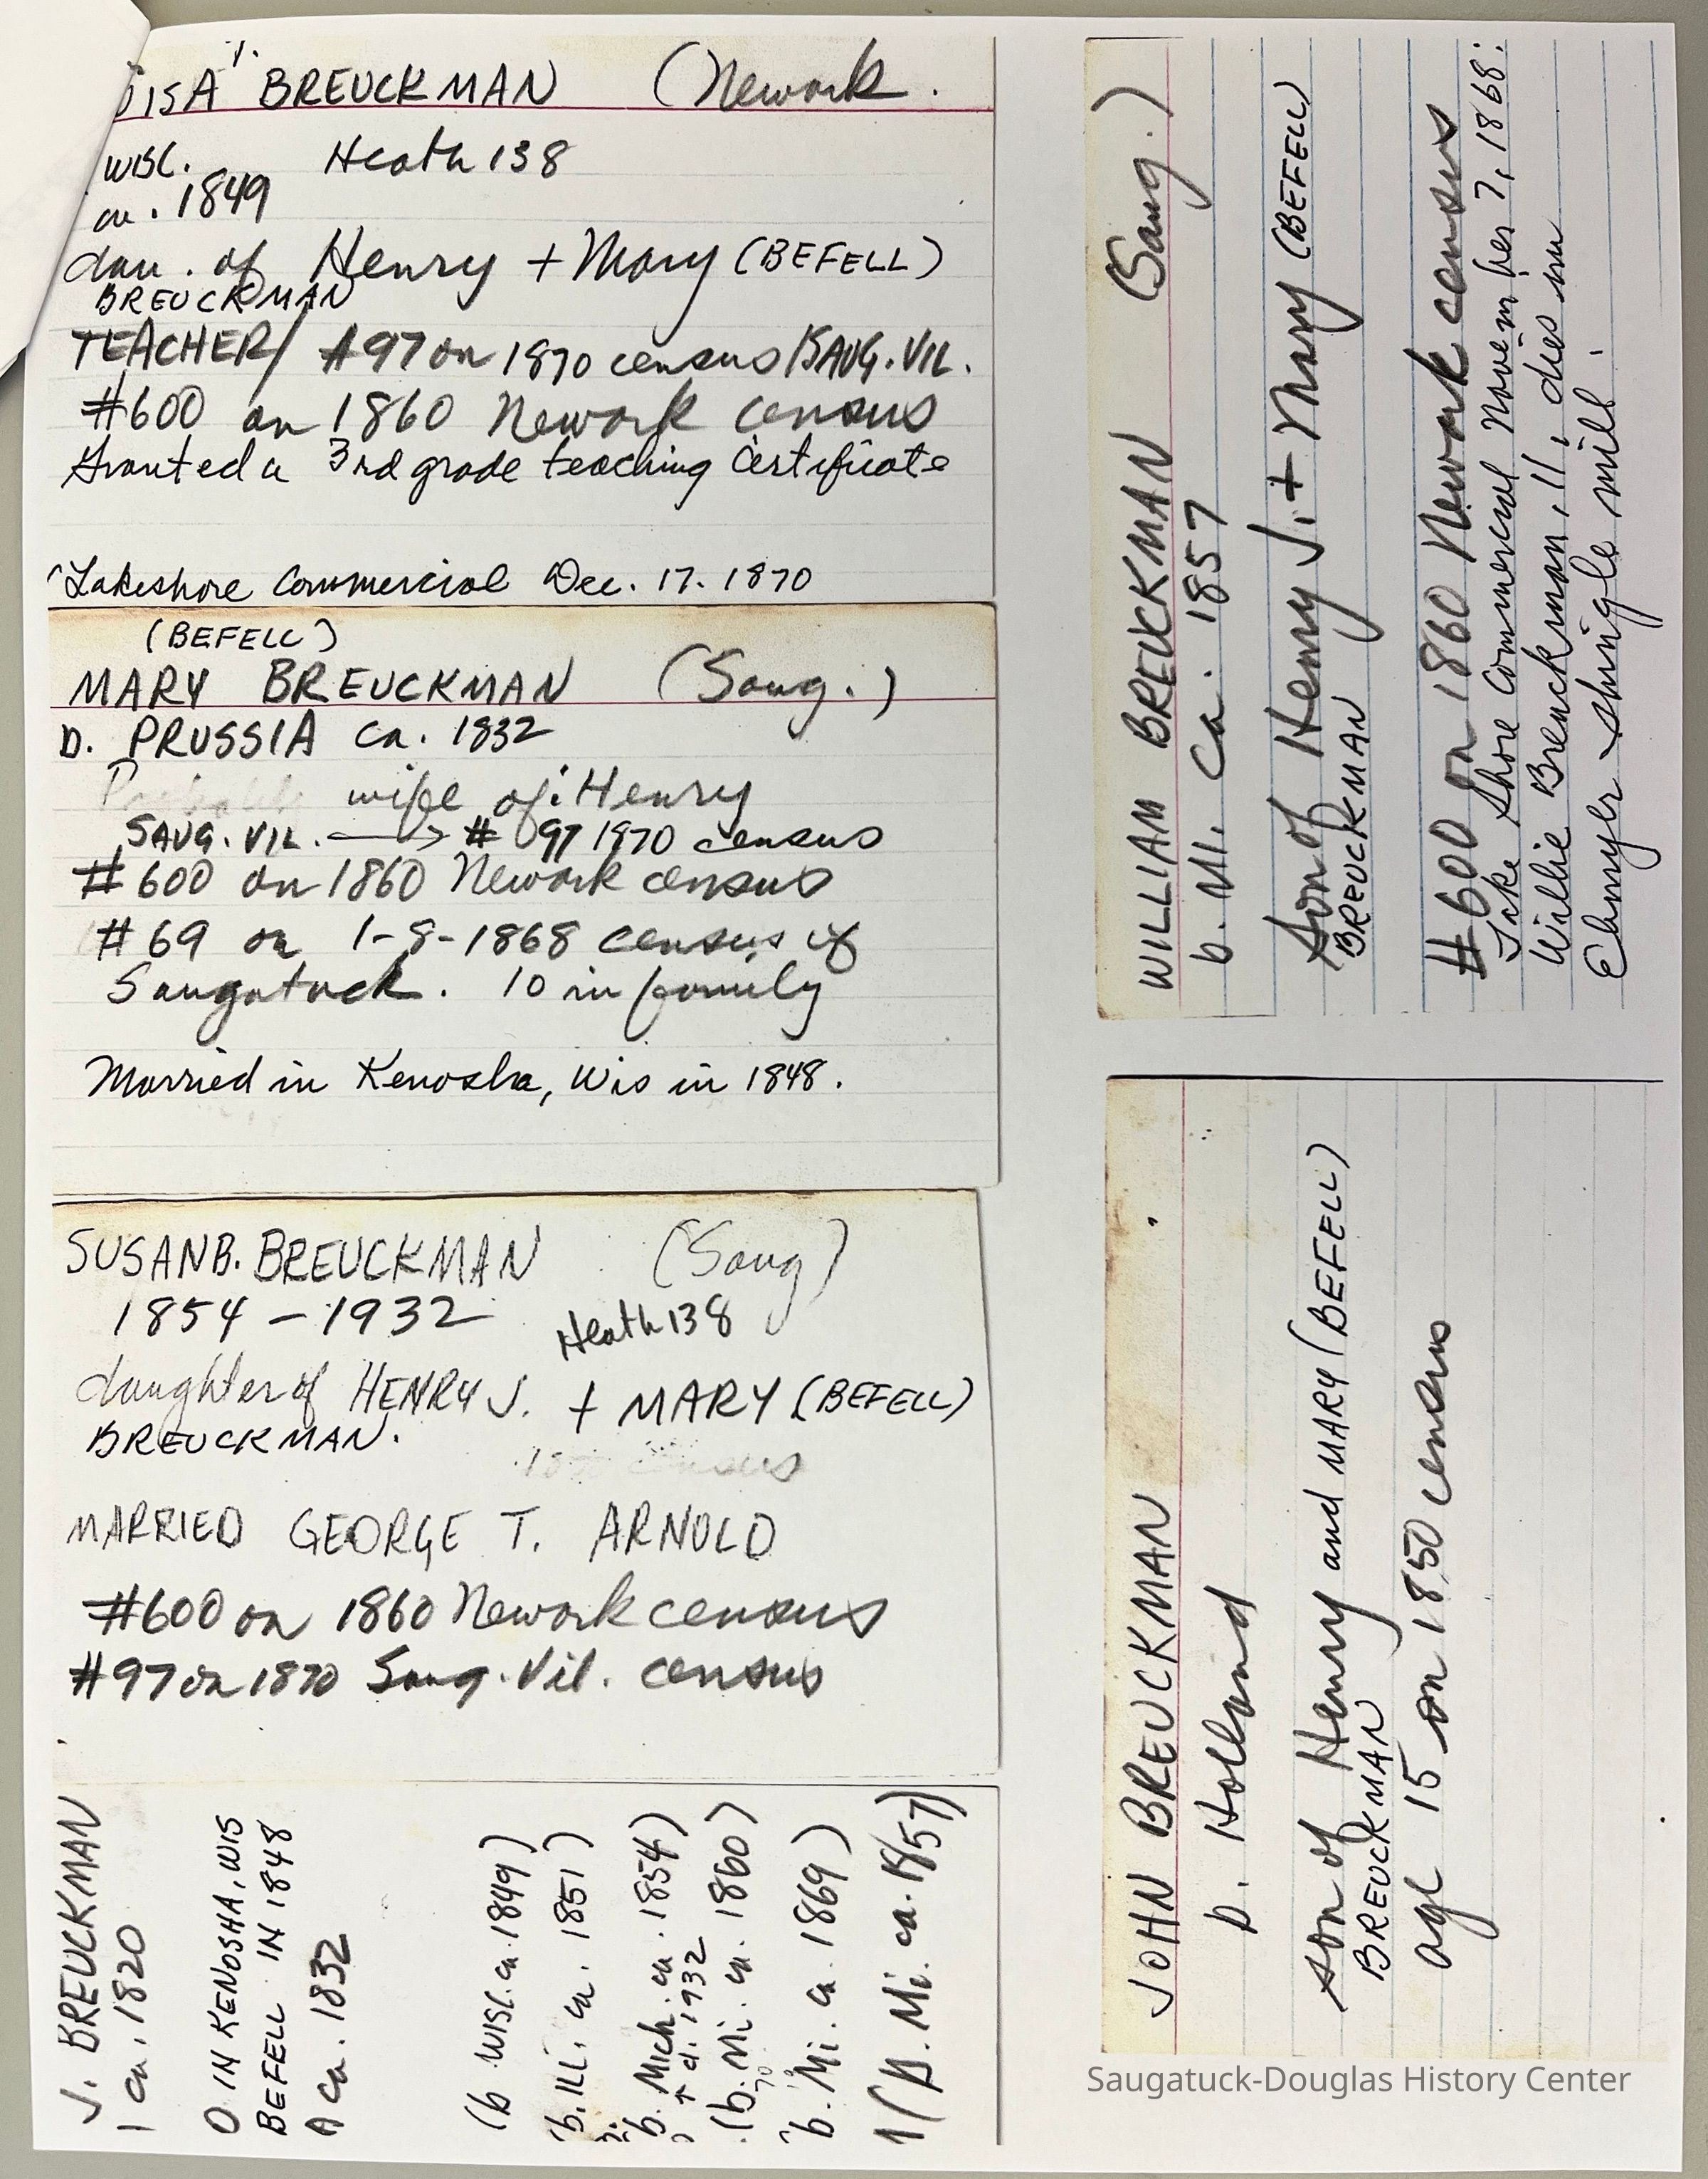 BREUCKMAN (Newark.
WISC. Heath 138
ca. 1849
dau. of Henry + Mary (BEFELL)
BREUCKMAN
TEACHER/ #97 on 1870 census/SAUG. VIL.
#600 on 1860 Newark census
Granted a 3rd grade teaching certificate
Lakeshore Commercial Dec. 17. 1870
(BEFELL)
MARY BREUCKMAN (Saug.)
b. PRUSSIA ca. 1832
Probably wife of: Henry
SAUG. VIL. → # 97 1870 census
#600 on 1860 Newark census
#69 on 1-8-1868 census of
Saugatuck. 10 in family
Married in Kenosha, Wis in 1848.
SUSAN B. BREUCKMAN (Saug)
1854 - 1932 Heath 138
daughter of HENRY J. + MARY (BEFELL)
BREUCKMAN.
census
MARRIED GEORGE T. ARNOLD
#600 on 1860 Newark census
#97 on 1870 Saug. Vil. census
J. BREUCKMAN
ca. 1820
D IN KENOSHA, WIS
BEFELL IN 1848
A ca. 1832
(b WISC. ca. 1849)
(b. ILL. ca. 1851)
b. Mich. ca. 1854)
d. 1932
(b. Mi. ca. 1860)
b. Mi. ca. 1869)
(b. Mi. ca. 1857)
WILLIAM BREUCKMAN (Saug.)
b. MI. ca. 1857
Son of Henry J. + Mary (BEFELL)
BREUCKMAN
#600 on 1860 Newark census
Lake Shore Commercial November 7, 1868:
Willie Breuckman, 11, dies in
shingle mill.
JOHN BREUCKMAN
b. Holland
son of Henry and MARY (BEFELL)
BREUCKMAN
age 15 on 1850 census
Saugatuck-Douglas History Center